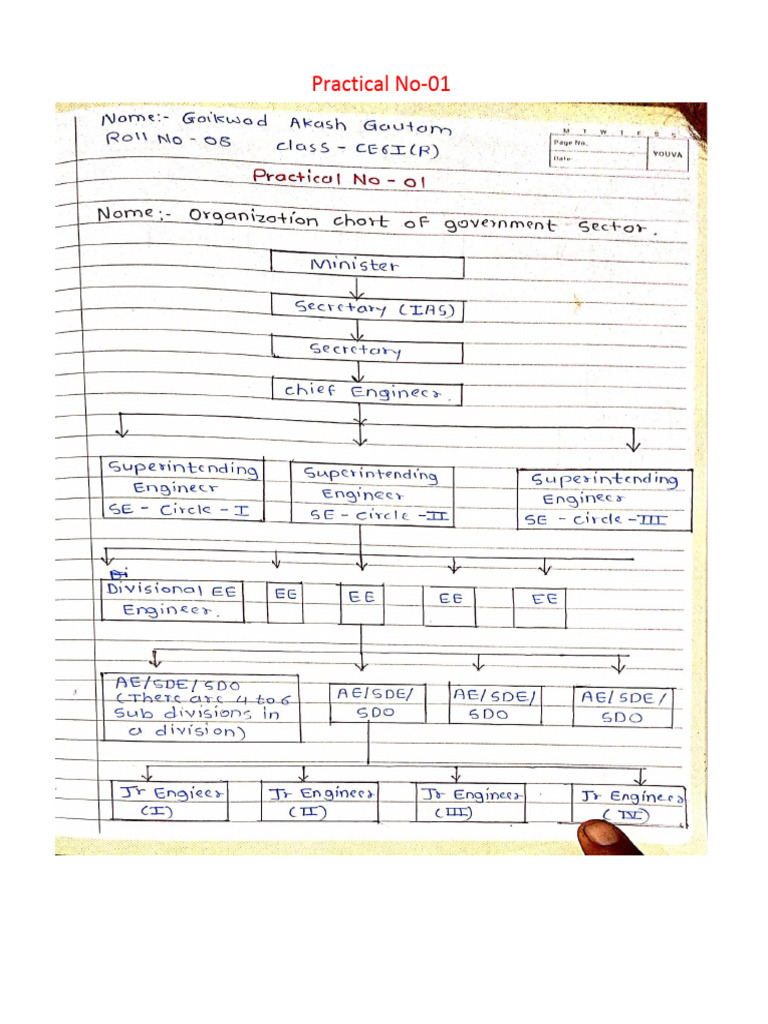 Practical No-01
Name:- Gaikwad Akash Gautam
Roll No - 06 class - CE6I(R)
M T W T F S S
Page No.
Date:
YOUVA
Practical No - 01
Name:- Organization chart of government sector.
Minister
Secretary (IAS)
Secretary
Chief Engineer.
Superintending
Engineer
SE - Circle - I
Superintending
Engineer
SE - Circle - II
Superintending
Engineer
SE - Circle - III
Divisional EE
Engineer.
EE
EE
EE
EE
AE/SDE/SDO
(There are 4 to 6
sub divisions in
a division)
AE/SDE/
SDO
AE/SDE/
SDO
AE/SDE/
SDO
Jr Engieer
(I)
Jr Engineer
(II)
Jr Engineer
(III)
Jr Engineer
(IV)